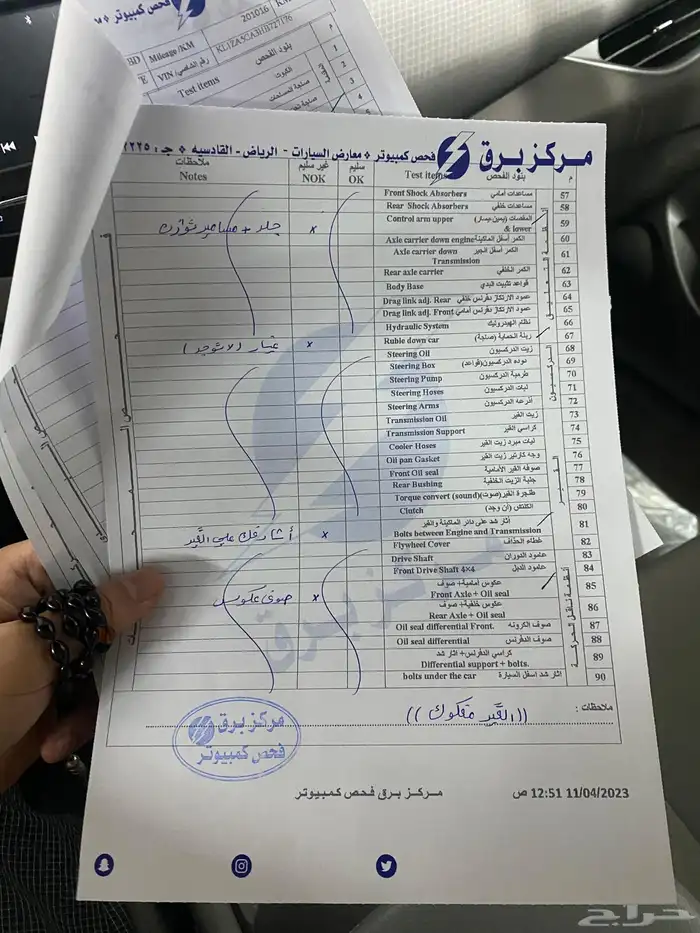 فحص كمبيوتر
Mileage/KM
201016
KM
VIN/
رقم الشاصي
Test items
بنود الفحص
م
1
2
3
4
مركز برق
فحص كمبيوتر ❖ معارض السيارات - الرياض - القادسيه ❖ ج :
م
بنود الفحص Test items
سليم OK
غير سليم NOK
ملاحظات Notes
57 مساعدات أمامي Front Shock Absorbers
58 مساعدات خلفي Rear Shock Absorbers
59 المقصات (يمين-يسار) Control arm upper & lower
x
جلد + مسامير
60 الكمر أسفل الماكينة Axle carrier down engine
61 الكمر أسفل الجير Axle carrier down Transmission
62 الكمر الخلفي Rear axle carrier
63 قواعد تثبيت البدي Body Base
64 عمود الارتكاز دفرنس خلفي Drag link adj. Rear
65 عمود الارتكاز دفرنس أمامي Drag link adj. Front
66 نظام الهيدروليك Hydraulic System
67 ربلة الحماية (صاجة) Ruble down car
x
غيار (لا توجد)
68 زيت الدركسيون Steering Oil
69 نوده الدركسيون(قواعد) Steering Box
70 طرمبة الدركسيون Steering Pump
71 ليات الدركسيون Steering Hoses
72 أذرعه الدركسيون Steering Arms
73 زيت القير Transmission Oil
74 كراسي القير Transmission Support
75 ليات مبرد زيت القير Cooler Hoses
76 وجه كارتير زيت القير Oil pan Gasket
77 صوفه القير الأمامية Front Oil seal
78 جلبة الزيت الخلفية Rear Bushing
79 طنجرة القير(صوت) Torque convert (sound)
80 الكلتش (ان وجد) Clutch
81 أثار شد على دائر الماكينة والقير Bolts between Engine and Transmission
x
أثار فك على القير
82 غطاء الحذاف Flywheel Cover
83 عامود الدوران Drive Shaft
84 عامود الدبل Front Drive Shaft 4×4
85 عكوس أمامية+ صوف Front Axle + Oil seal
x
صوف عكوس
86 عكوس خلفية+ صوف Rear Axle + Oil seal
87 صوف الكرونه Oil seal differential Front.
88 صوف الدفرنس Oil seal differential
89 كراسي الدفرنس+ اثار شد Differential support + bolts.
90 اثار شد اسفل السيارة bolts under the car
ملاحظات :
((القير مفكوك))
مركز برق
فحص كمبيوتر
11/04/2023 12:51 ص
مركز برق فحص كمبيوتر
حراج